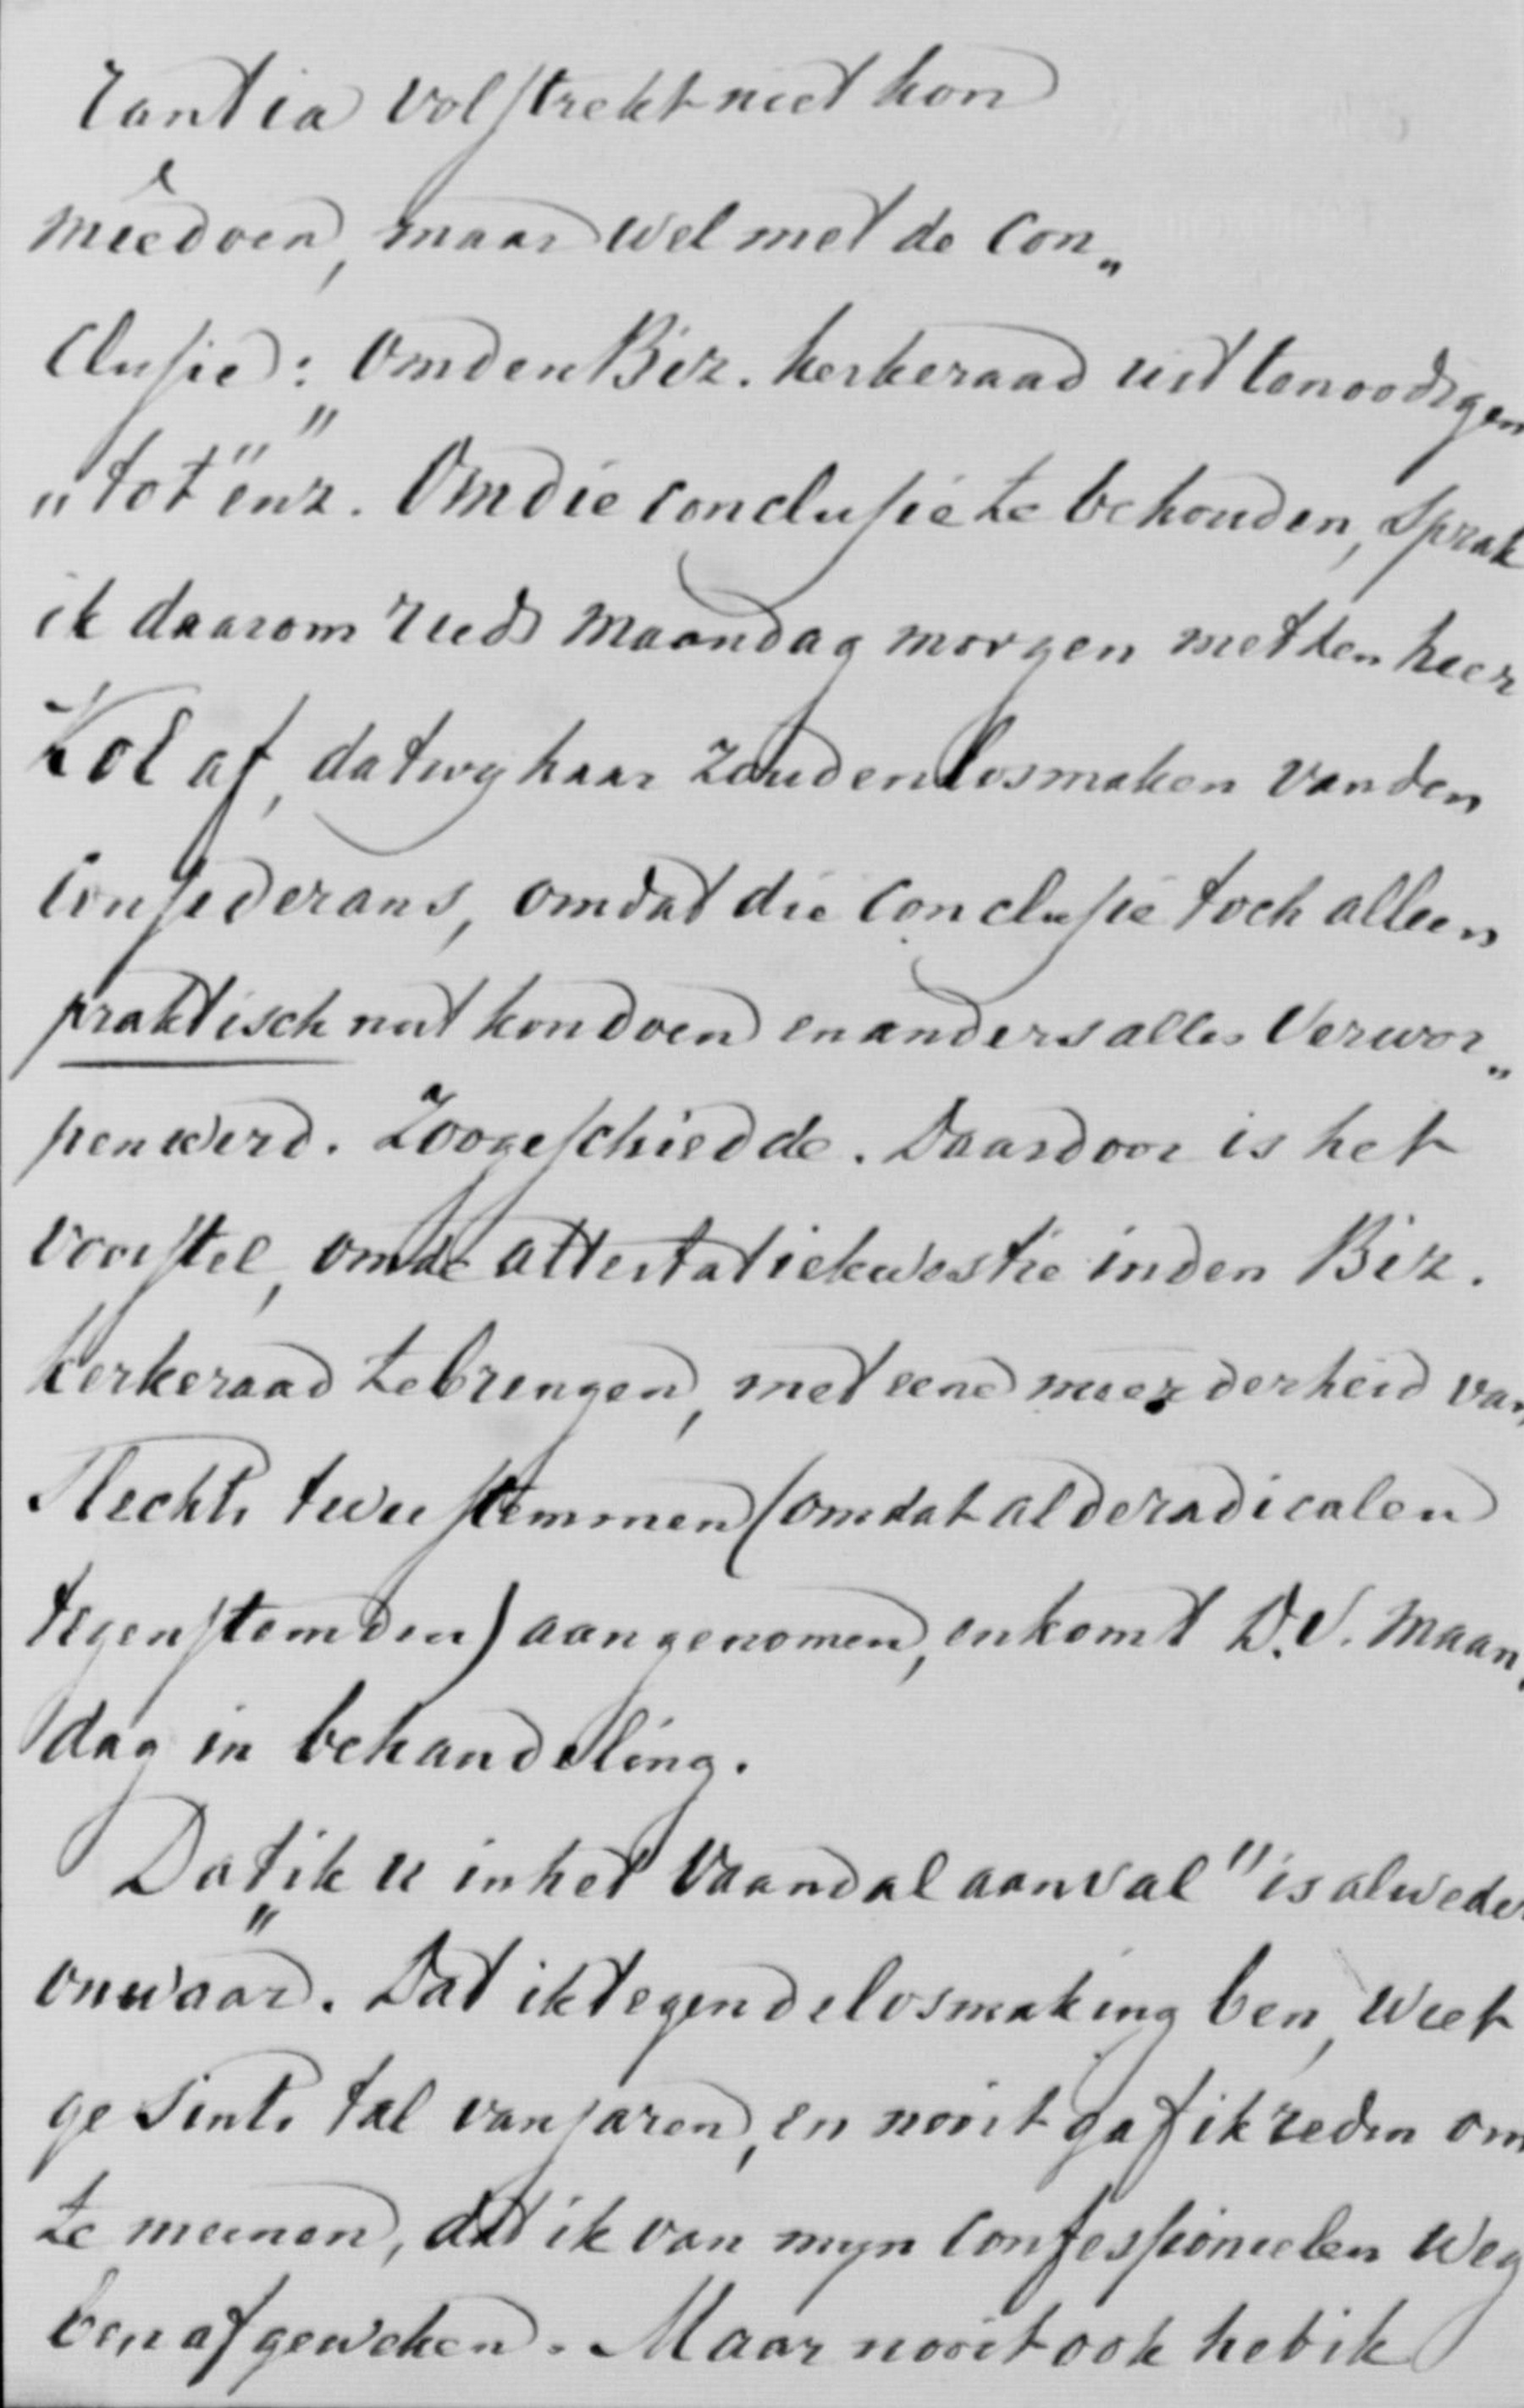 rantia volstrekt niet kon
meêdoen, maar wel met de con„
clusie: „om den Biz. kerkeraad uit te noodigen
„tot" enz. Om die conclusie te behouden, sprak
ik daarom reeds Maandag morgen met den heer
Kol af, dat wy haar zouden losmaken van den
considerans, omdat die conclusie toch alleen
praktisch nut kon doen en anders alles verwor„
pen werd. Zoo geschiedde. Daardoor is het
voorstel, om de attestatiekwestie in den Biz.
kerkeraad te brengen, met eene meerderheid van
slechts twee stemmen (omdat al de radicalen
tegenstemden) aangenomen, en komt D.V. Maan„
dag in behandeling.
Dat ik u „in het Vaandel aanval" is alweder
onwaar. Dat ik tegen de losmaking ben, weet
ge sints tal van jaren, en nooit gaf ik reden om
te meenen, dat ik van myn confessioneelen weg
ben afgeweken. Maar nooit ook heb ik